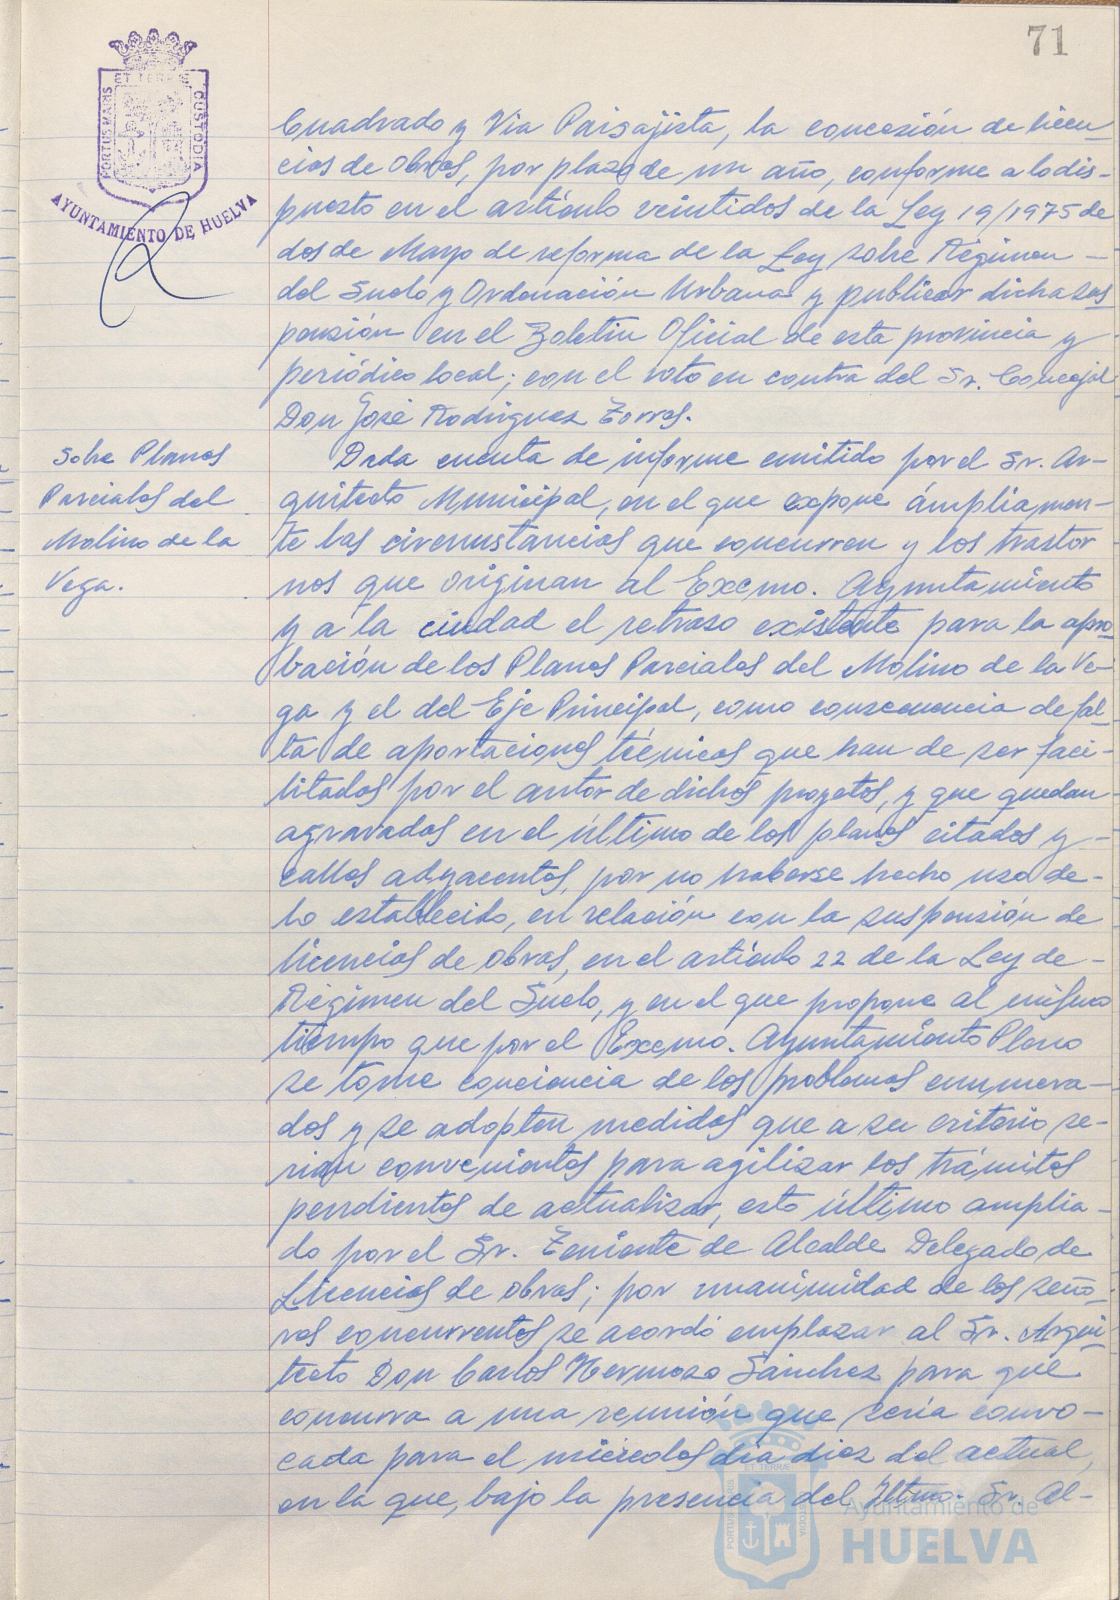 71
ET TERRE
PORTUS MARIS
CUSTODIA
AYUNTAMIENTO DE HUELVA
Cuadrado y Via Paisajista, la concesión de licen-
cias de obras, por plazo de un año, conforme a lo dis-
puesto en el artículo veintidos de la Ley 19/1975 de
dos de Mayo de reforma de la Ley sobre Régimen -
del Suelo y Ordenación Urbana y publicar dicha sus
pensión en el Boletin Oficial de esta provincia y
periódico local; con el voto en contra del Sr. Concejal
Don José Rodríguez Torres.
Sobre Planos
Parciales del
Molino de la
Vega.
Dada cuenta de informe emitido por el Sr. Ar-
quitecto Municipal, en el que expone ámpliamen-
te las circunstancias que concurren y los trastor
nos que originan al Excmo. Ayuntamiento
y a la ciudad el retraso existente para la apro-
bación de los Planos Parciales del Molino de la Ve-
ga y el del Eje Principal, como consecuencia de fal-
ta de aportaciones técnicas que han de ser faci-
litados por el autor de dichos proyetos, y que quedan
agravados en el último de los planos citados y -
calles adyacentes, por no haberse hecho uso de-
lo establecido, en relación con la suspensión de
licencias de obras, en el artículo 22 de la Ley de -
Régimen del Suelo, y en el que propone al mismo
tiempo que por el Excmo. Ayuntamiento Pleno
se tome conciencia de los problemas enumera-
dos y se adopten medidas que a su criterio se-
rian convenientes para agilizar los trámites
pendientes de actualizar, esto último amplia-
do por el Sr. Teniente de Alcalde Delegado de
Licencias de obras; por unanimidad de los seño-
res concurrentes se acordó emplazar al Sr. Arqui-
tecto Don Carlos Hermoso Sánchez para que
concurra a una reunión que sería convo-
cada para el miércoles dia diez del actual,
en la que, bajo la presencia del Iltmo. Sr. Al-
ET TERRE
PORTUS MARIS
CUSTODIA
Ayuntamiento de
HUELVA